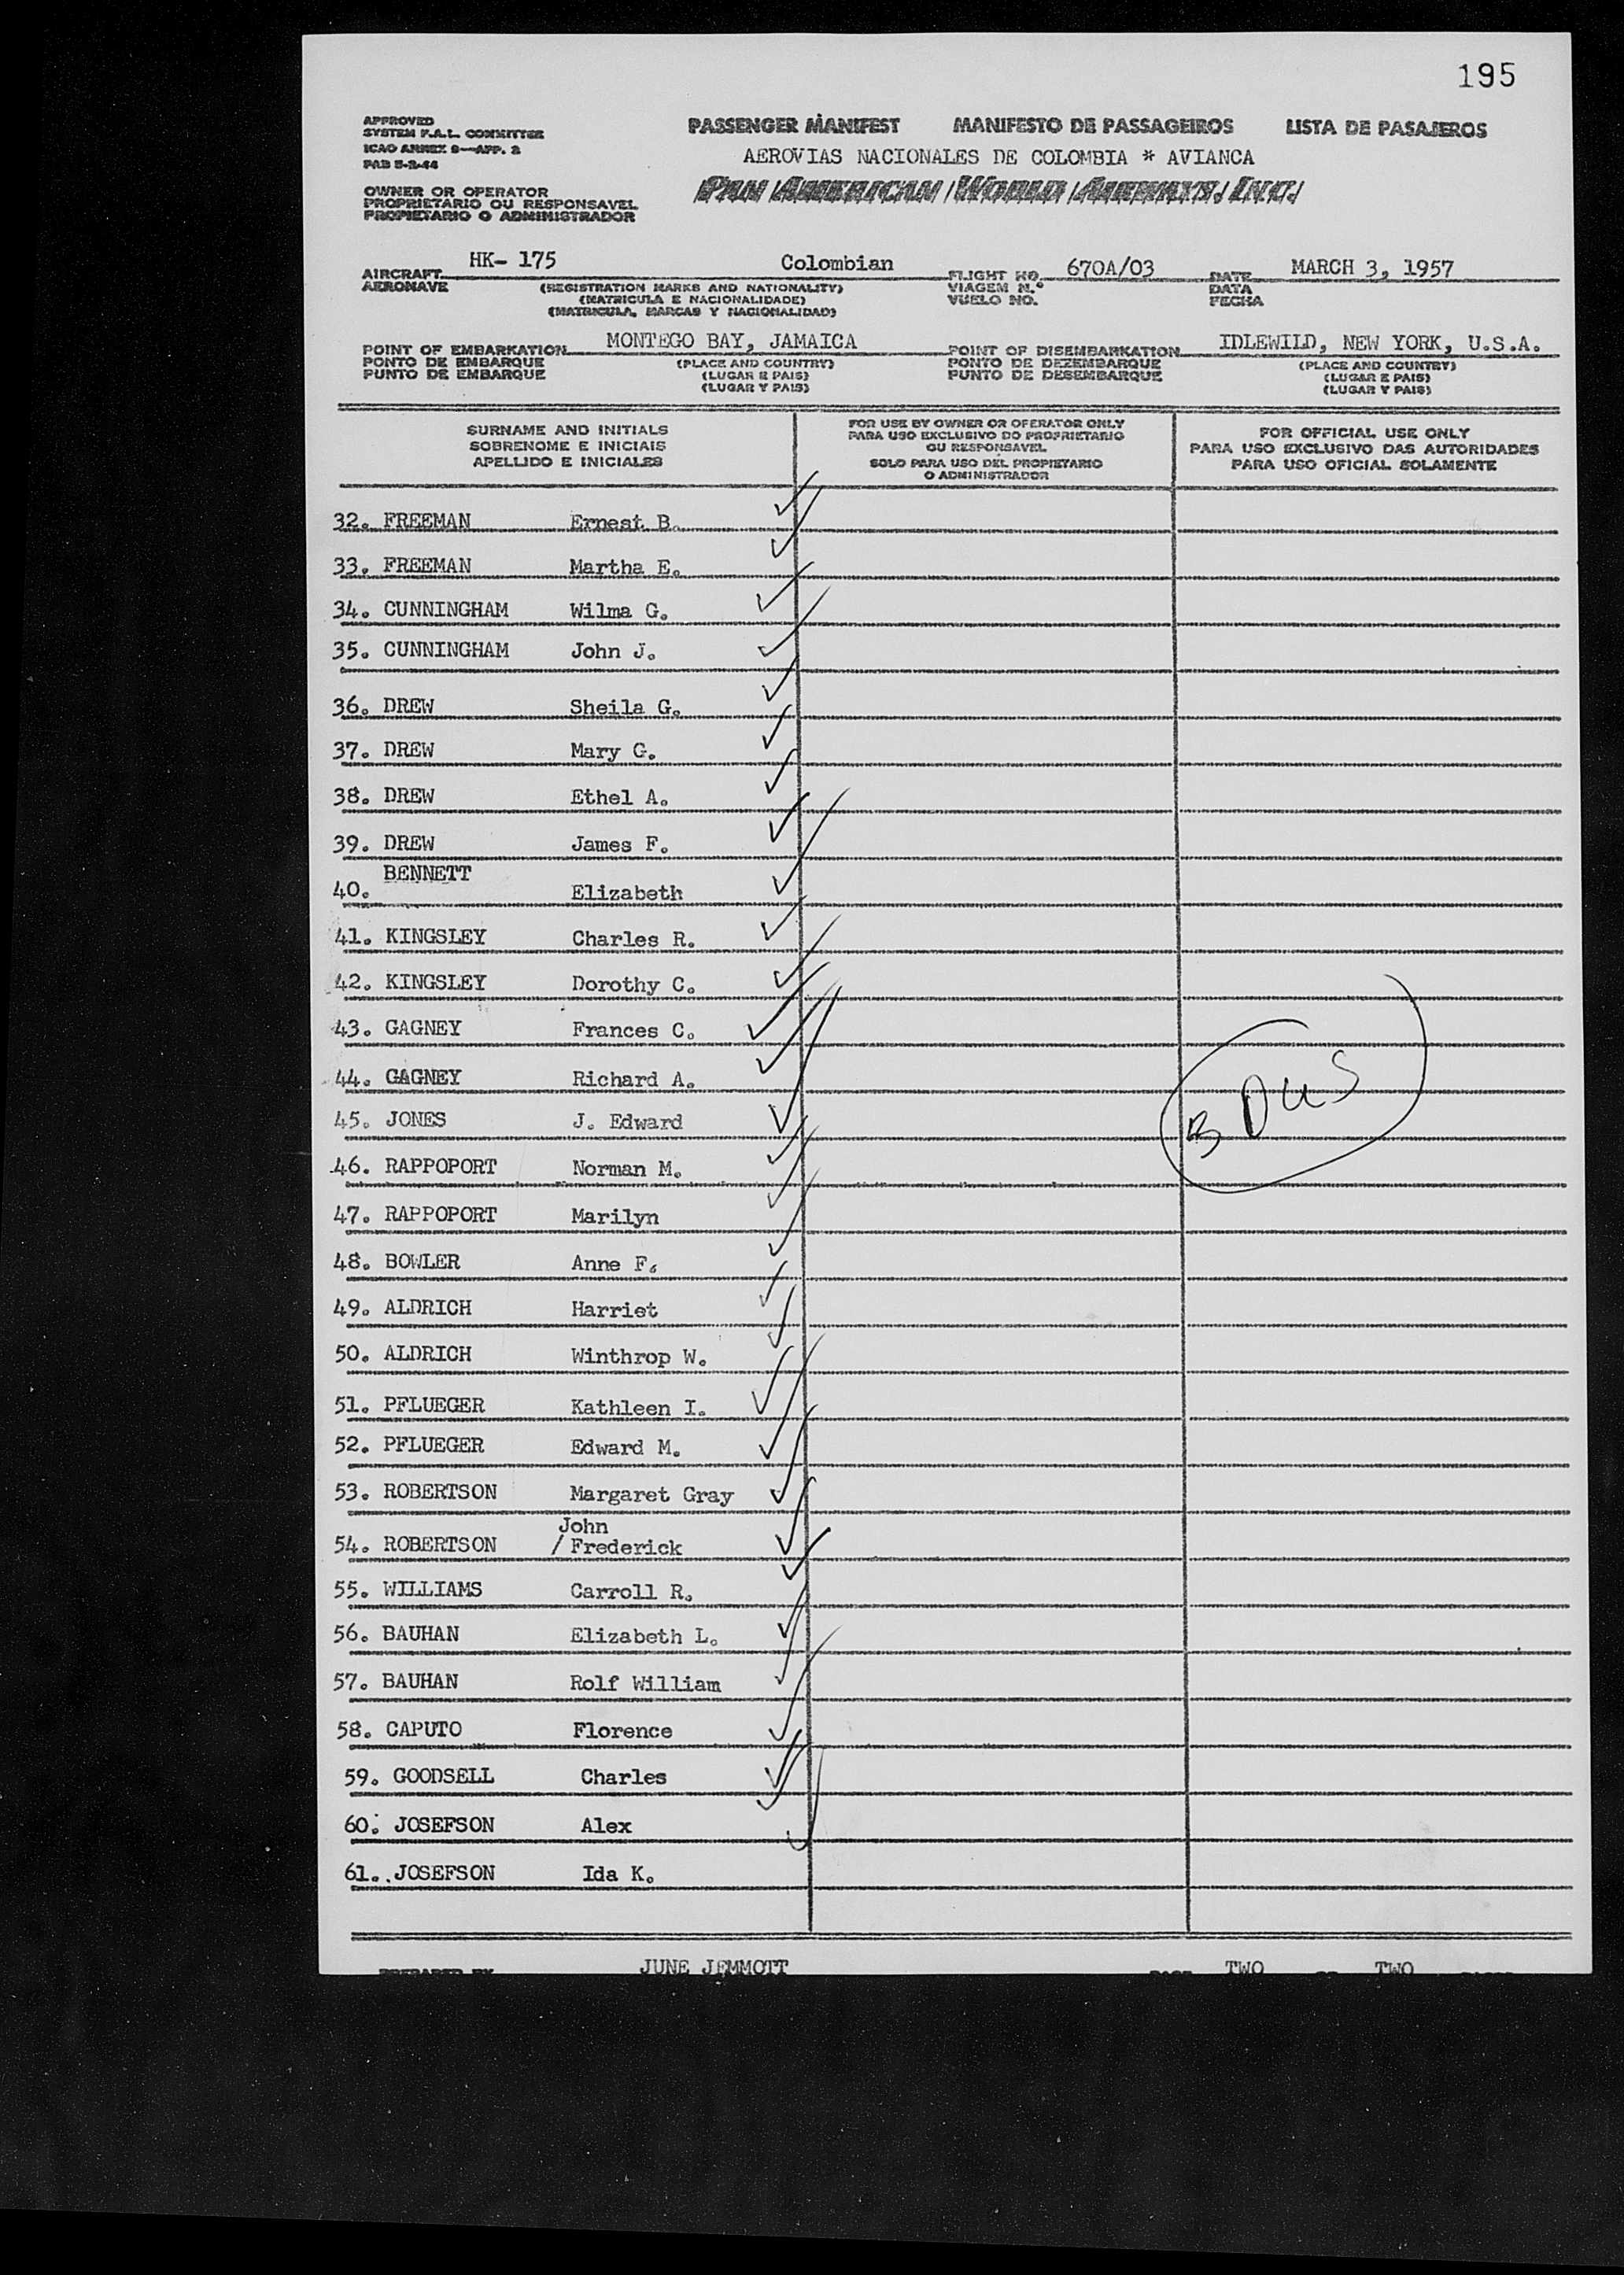 195
APPROVED
SYSTEM F.A.L. COMMITTEE
ICAO ANNEX 9—APP. 2
PAB 5-2-44
PASSENGER MANIFEST MANIFESTO DE PASSAGEIROS LISTA DE PASAJEROS
AEROVIAS NACIONALES DE COLOMBIA * AVIANCA
PAN AMERICAN WORLD AIRWAYS, INC.
OWNER OR OPERATOR
PROPRIETARIO OU RESPONSAVEL
PROPIETARIO O ADMINISTRADOR
AIRCRAFT HK- 175 Colombian FLIGHT NO. 670A/03 DATE MARCH 3, 1957
AERONAVE (REGISTRATION MARKS AND NATIONALITY) VIAGEM N.º DATA
(MATRICULA E NACIONALIDADE) VUELO NO. FECHA
(MATRICULA, MARCAS Y NACIONALIDAD)
POINT OF EMBARKATION MONTEGO BAY, JAMAICA POINT OF DISEMBARKATION IDLEWILD, NEW YORK, U.S.A.
PONTO DE EMBARQUE (PLACE AND COUNTRY) PONTO DE DEZEMBARQUE (PLACE AND COUNTRY)
PUNTO DE EMBARQUE (LUGAR E PAIS) PUNTO DE DESEMBARQUE (LUGAR E PAIS)
(LUGAR Y PAIS) (LUGAR Y PAIS)
SURNAME AND INITIALS
SOBRENOME E INICIAIS
APELLIDO E INICIALES
FOR USE BY OWNER OR OPERATOR ONLY
PARA USO EXCLUSIVO DO PROPRIETARIO
OU RESPONSAVEL
SOLO PARA USO DEL PROPIETARIO
O ADMINISTRADOR
FOR OFFICIAL USE ONLY
PARA USO EXCLUSIVO DAS AUTORIDADES
PARA USO OFICIAL SOLAMENTE
32. FREEMAN Ernest B.
33. FREEMAN Martha E.
34. CUNNINGHAM Wilma G.
35. CUNNINGHAM John J.
36. DREW Sheila G.
37. DREW Mary G.
38. DREW Ethel A.
39. DREW James F.
40. BENNETT Elizabeth
41. KINGSLEY Charles R.
42. KINGSLEY Dorothy C.
43. GAGNEY Frances C.
44. GAGNEY Richard A.
45. JONES J. Edward
46. RAPPOPORT Norman M.
47. RAPPOPORT Marilyn
48. BOWLER Anne F.
49. ALDRICH Harriet
50. ALDRICH Winthrop W.
51. PFLUEGER Kathleen I.
52. PFLUEGER Edward M.
53. ROBERTSON Margaret Gray
John
54. ROBERTSON / Frederick
55. WILLIAMS Carroll R.
56. BAUHAN Elizabeth L.
57. BAUHAN Rolf William
58. CAPUTO Florence
59. GOODSELL Charles
60. JOSEFSON Alex
61. JOSEFSON Ida K.
JUNE JEMMOTT TWO TWO